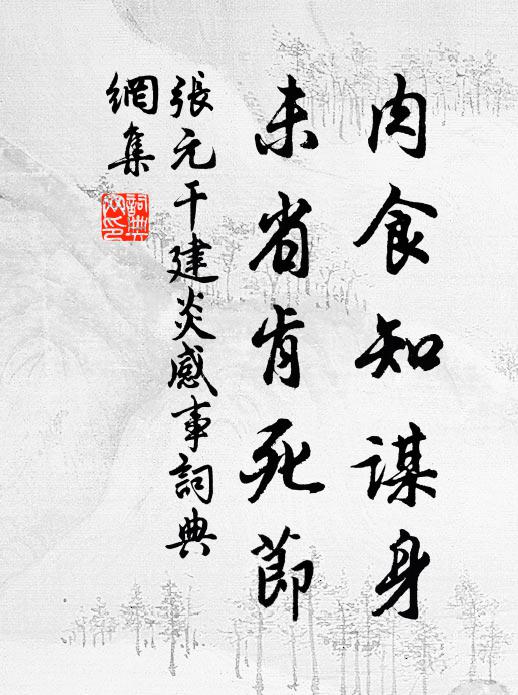 肉食知谋身
未省肯死節
張元干建炎感事詞典
網集
詞典
网印